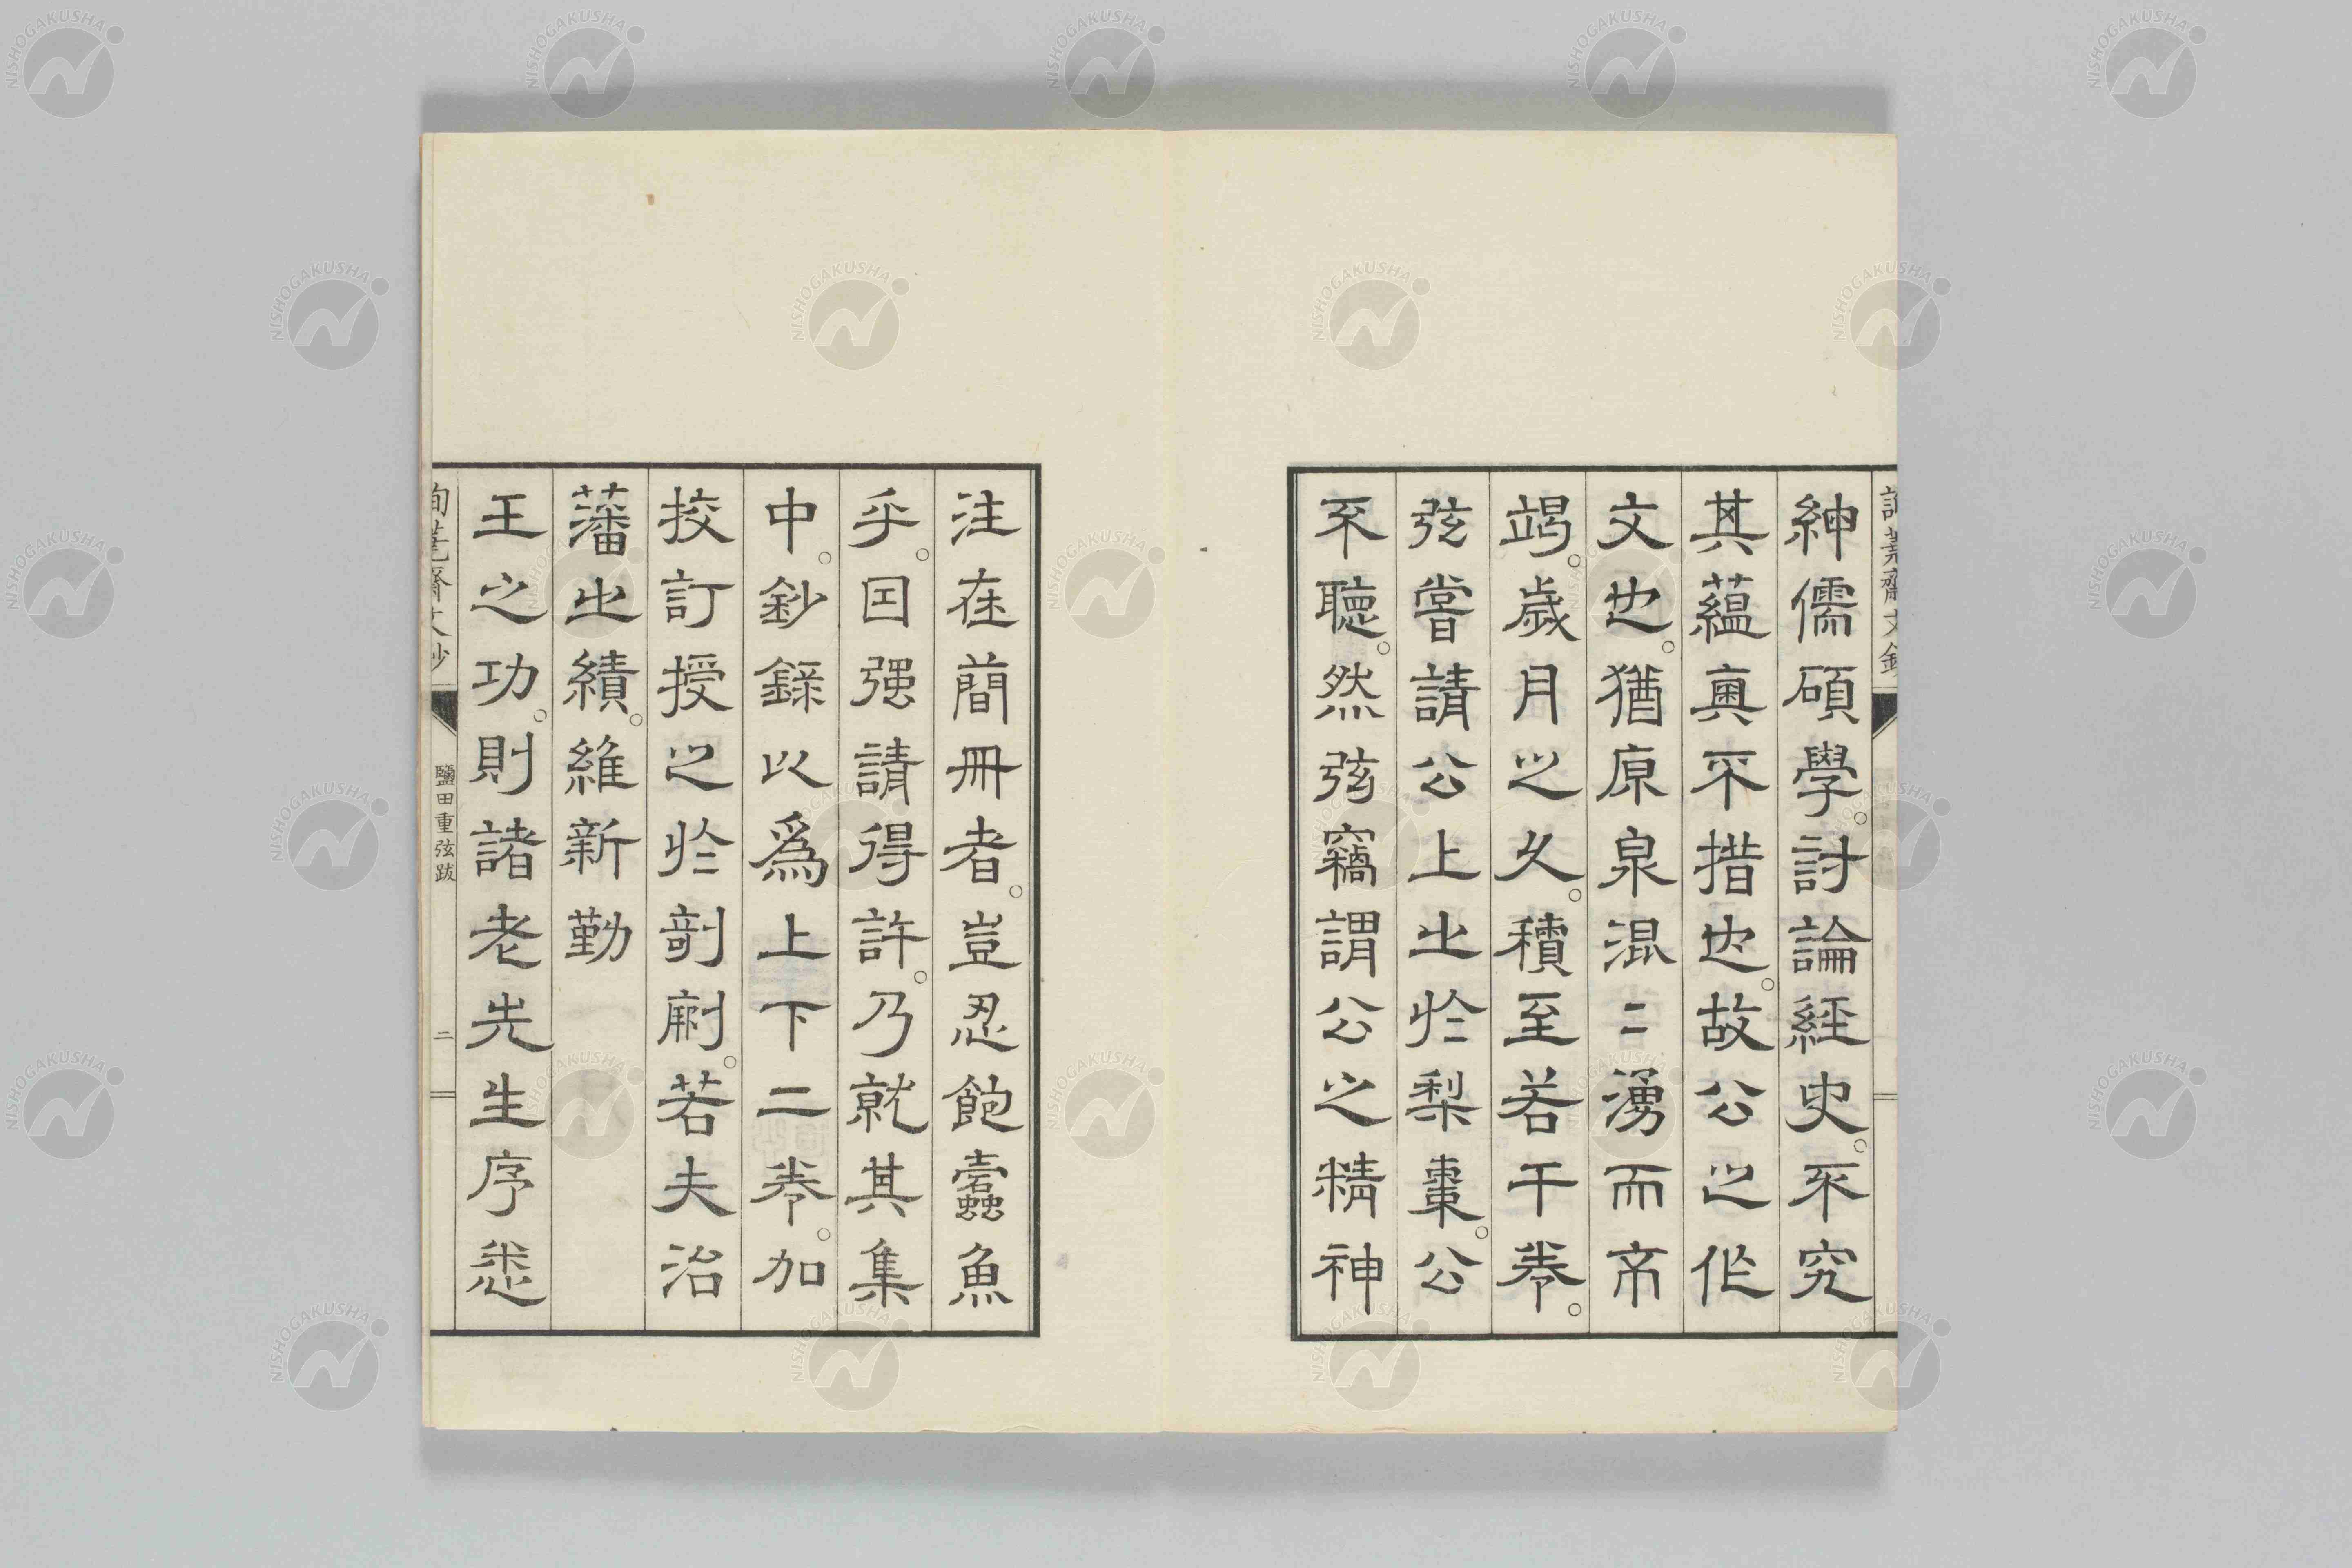 紳儒碩學。討論經史。不究
其蘊奧不措也。故公之作
文也。猶原泉混〻湧而不
竭。歲月之久。積至若干卷。
弦嘗請公上之於梨棗。公
不聽。然弦竊謂公之精神
注在簡冊者。豈忍飽蠹魚
乎。因强請得許。乃就其集
中。鈔錄以爲上下二卷。加
挍訂授之於剞劂。若夫治
藩之績。維新勤
王之功。則諸老先生序悉
鹽田重弦跋
二
NISHOGAKUSHA